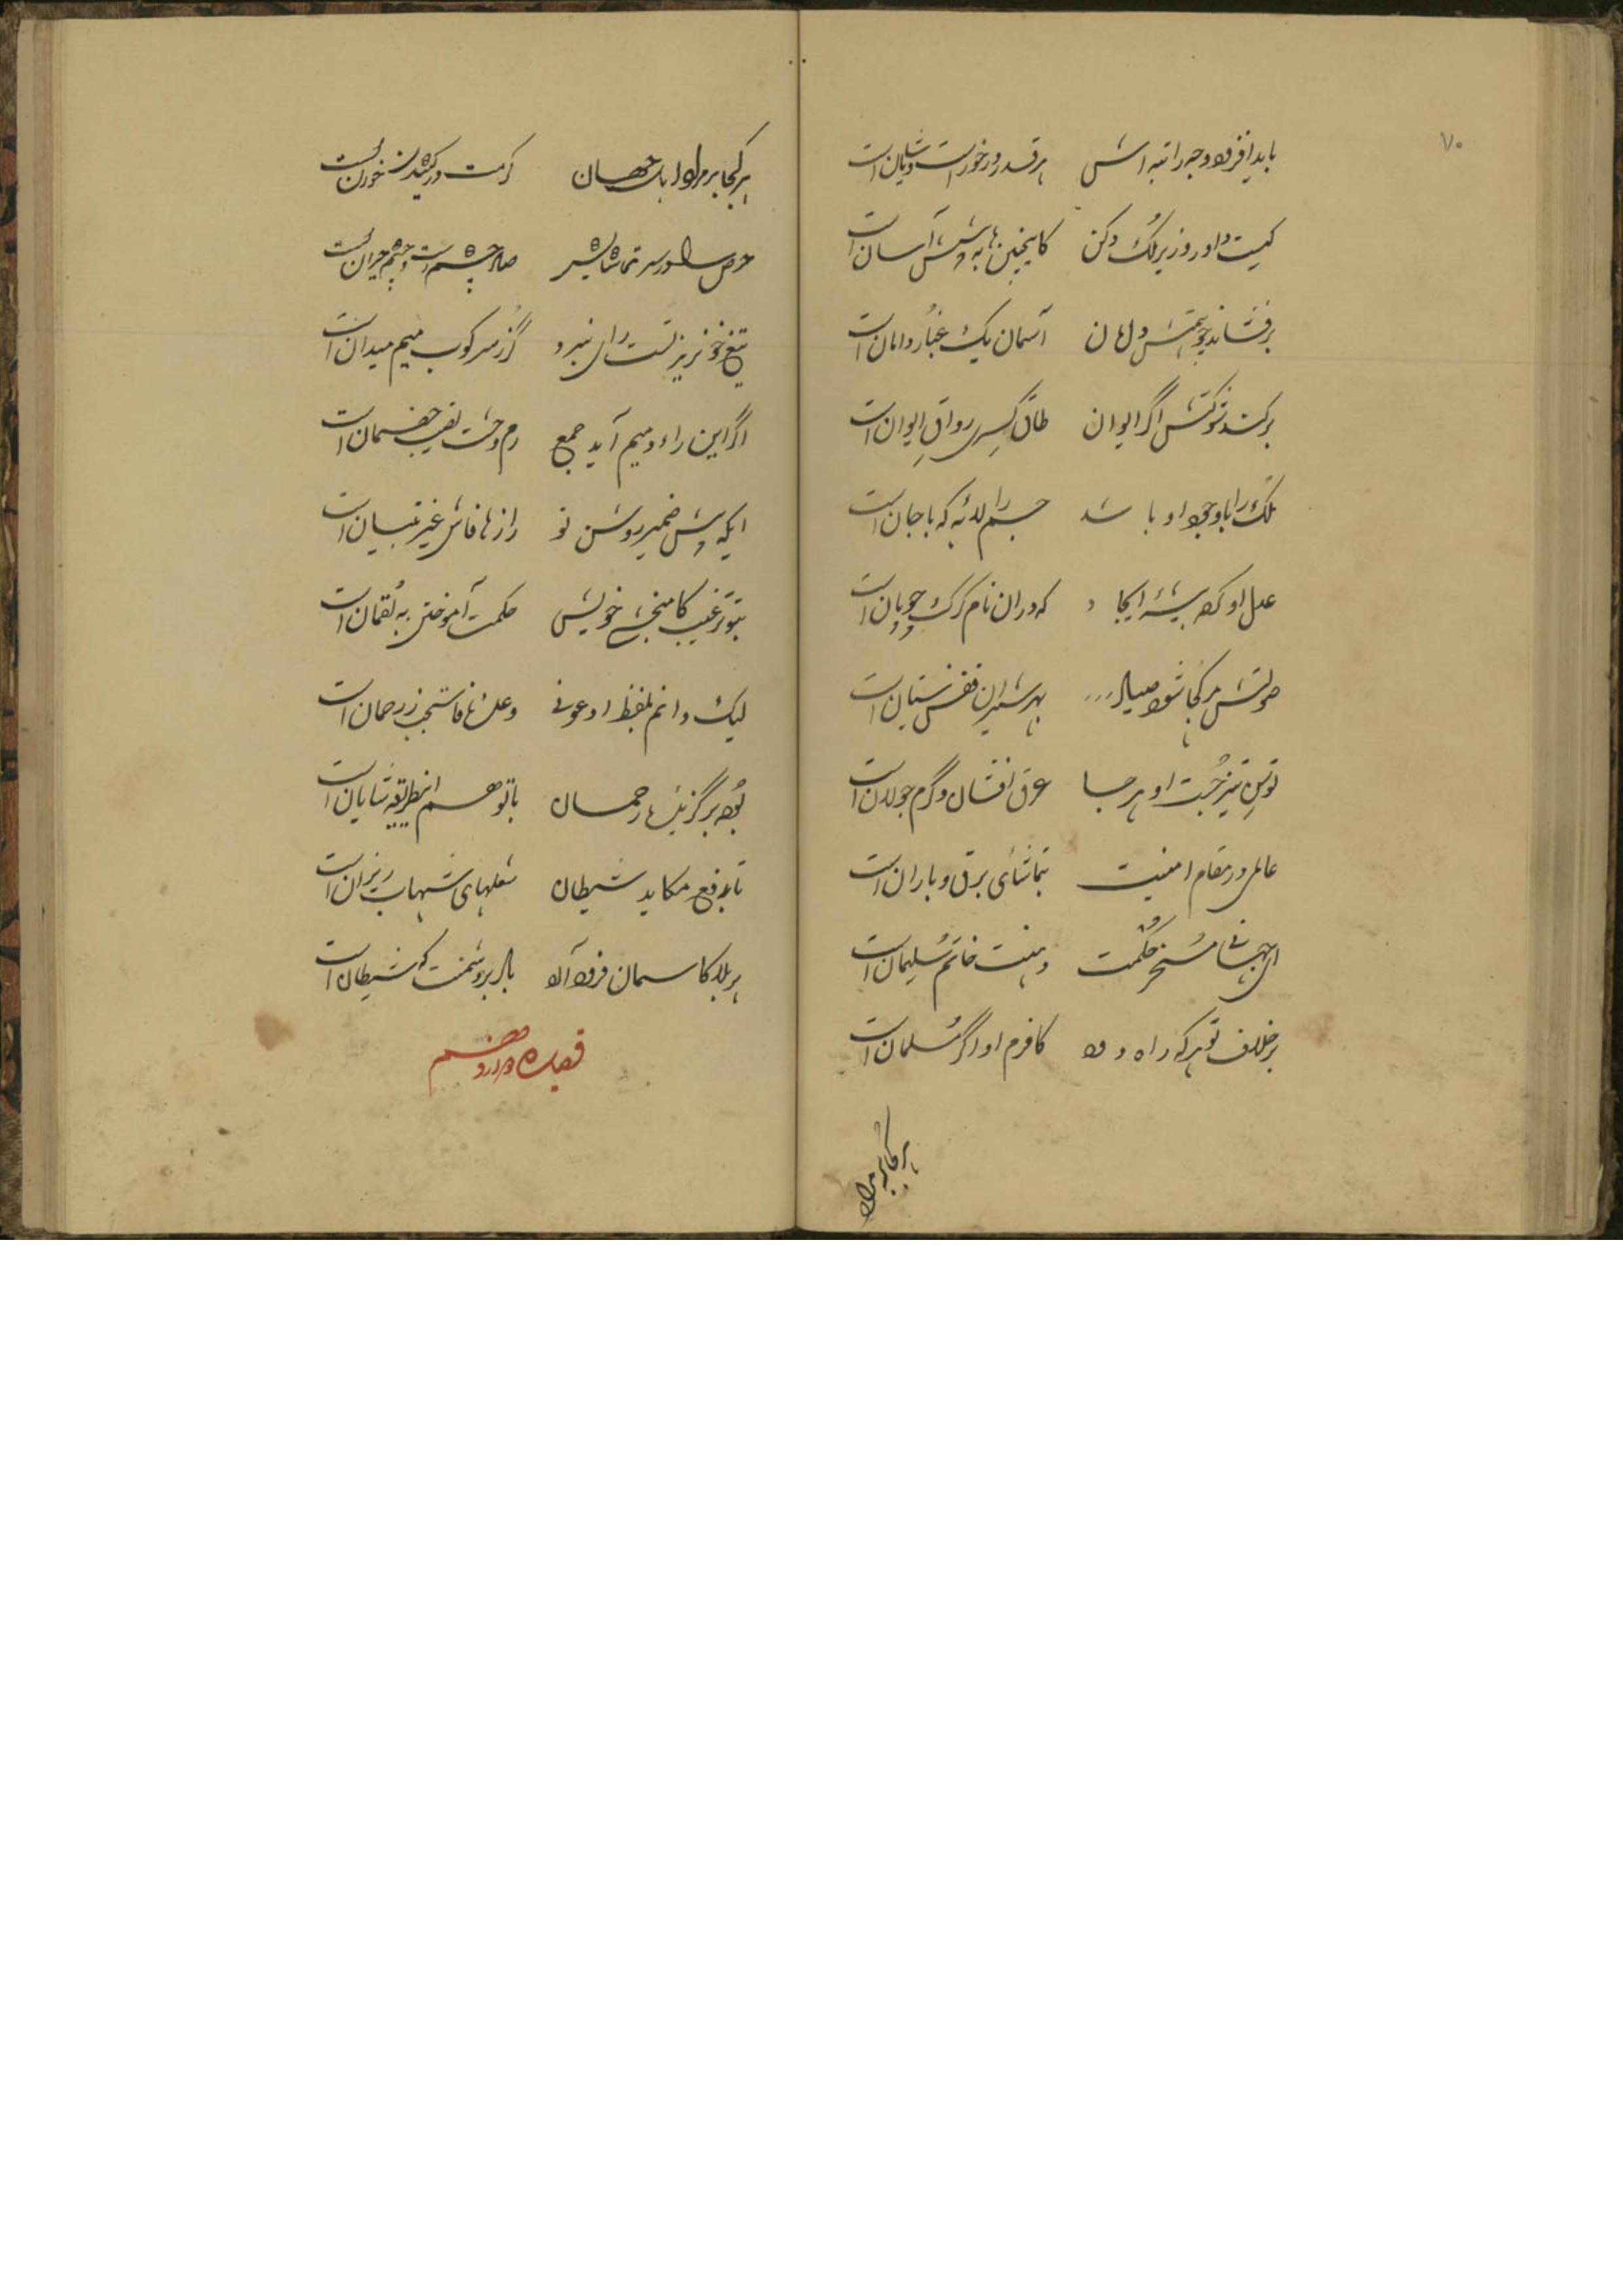 ۷۰
باید افزود وجه راتبه اش هر قدر در خور است و شایان است
کیست داور وزیر ملک دکن کاینچنین ها به پیشش آسان است
برفشاند چو همتش دامان آسمان یک غبار دامان است
برکشد شوکتش اگر ایوان طاق کسری رواق ایوان است
ملک را با وجود او باشد جسم را لابه که با جان است
عدل او کرد بیشه ایجاد که در آن نام گرگ چوپان است
صولتش هر کجا شود صیاد بهر شیران قفس نیستان است
توسن تیز جست او هر جا عرق افشان و گرم جولان است
عالمی در مقام امنیت بتماشای برق و باران است
ای جهانی مسخر حکمت دهنت خاتم سلیمان است
بر خلاف تو هر که راه رود کافرم او اگر مسلمان است
هر کجا بر مراد
هر کجا بر مراد اهل جهان کرمت در کشیدن خوان است
حرص را در سر تماشا سیر صد چشم است و چشم حیران است
تیغ خونریز تست رای نبرد گرز سرکوب میم میدان است
گر این راء و میم آید جمع رم وحشت نصیب خصمان است
ایکه پیش ضمیر روشن تو رازها فاش غیر تبیان است
بتو ترغیب کامبخشی خویش حکمت آموختن به لقمان است
لیک دانم بلفظ ادعونی وعده فاستجب ز رحمان است
بود برگزیده رحمان با تو هم اینطریقه شایان است
تا بدفع مکاید شیطان شعلهای شهاب ریزان است
هر بلا کاسمان فرود آرد بال بر دشمنت که شیطان است
قصیده دوازدهم